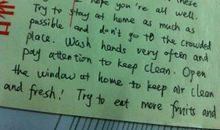 hope you're all well.
Try to stay at home as much as
possible! and don't go to the crowded
place. Wash hands very often and
pay attention to keep clean. Open
the window at home to keep air clean
and fresh! Try to eat more fruits and